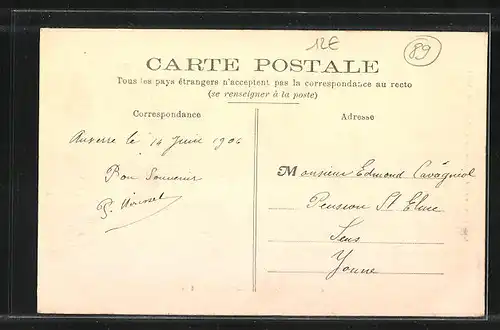 12E
89
CARTE POSTALE
Tous les pays étrangers n'acceptent pas la correspondance au recto
(se renseigner à la poste)
Correspondance
Auxerre le 14 Juin 1906
Bon Souvenir
Adresse
Monsieur Edmond Cavagniol
Pension St Elme
Sens
Yonne